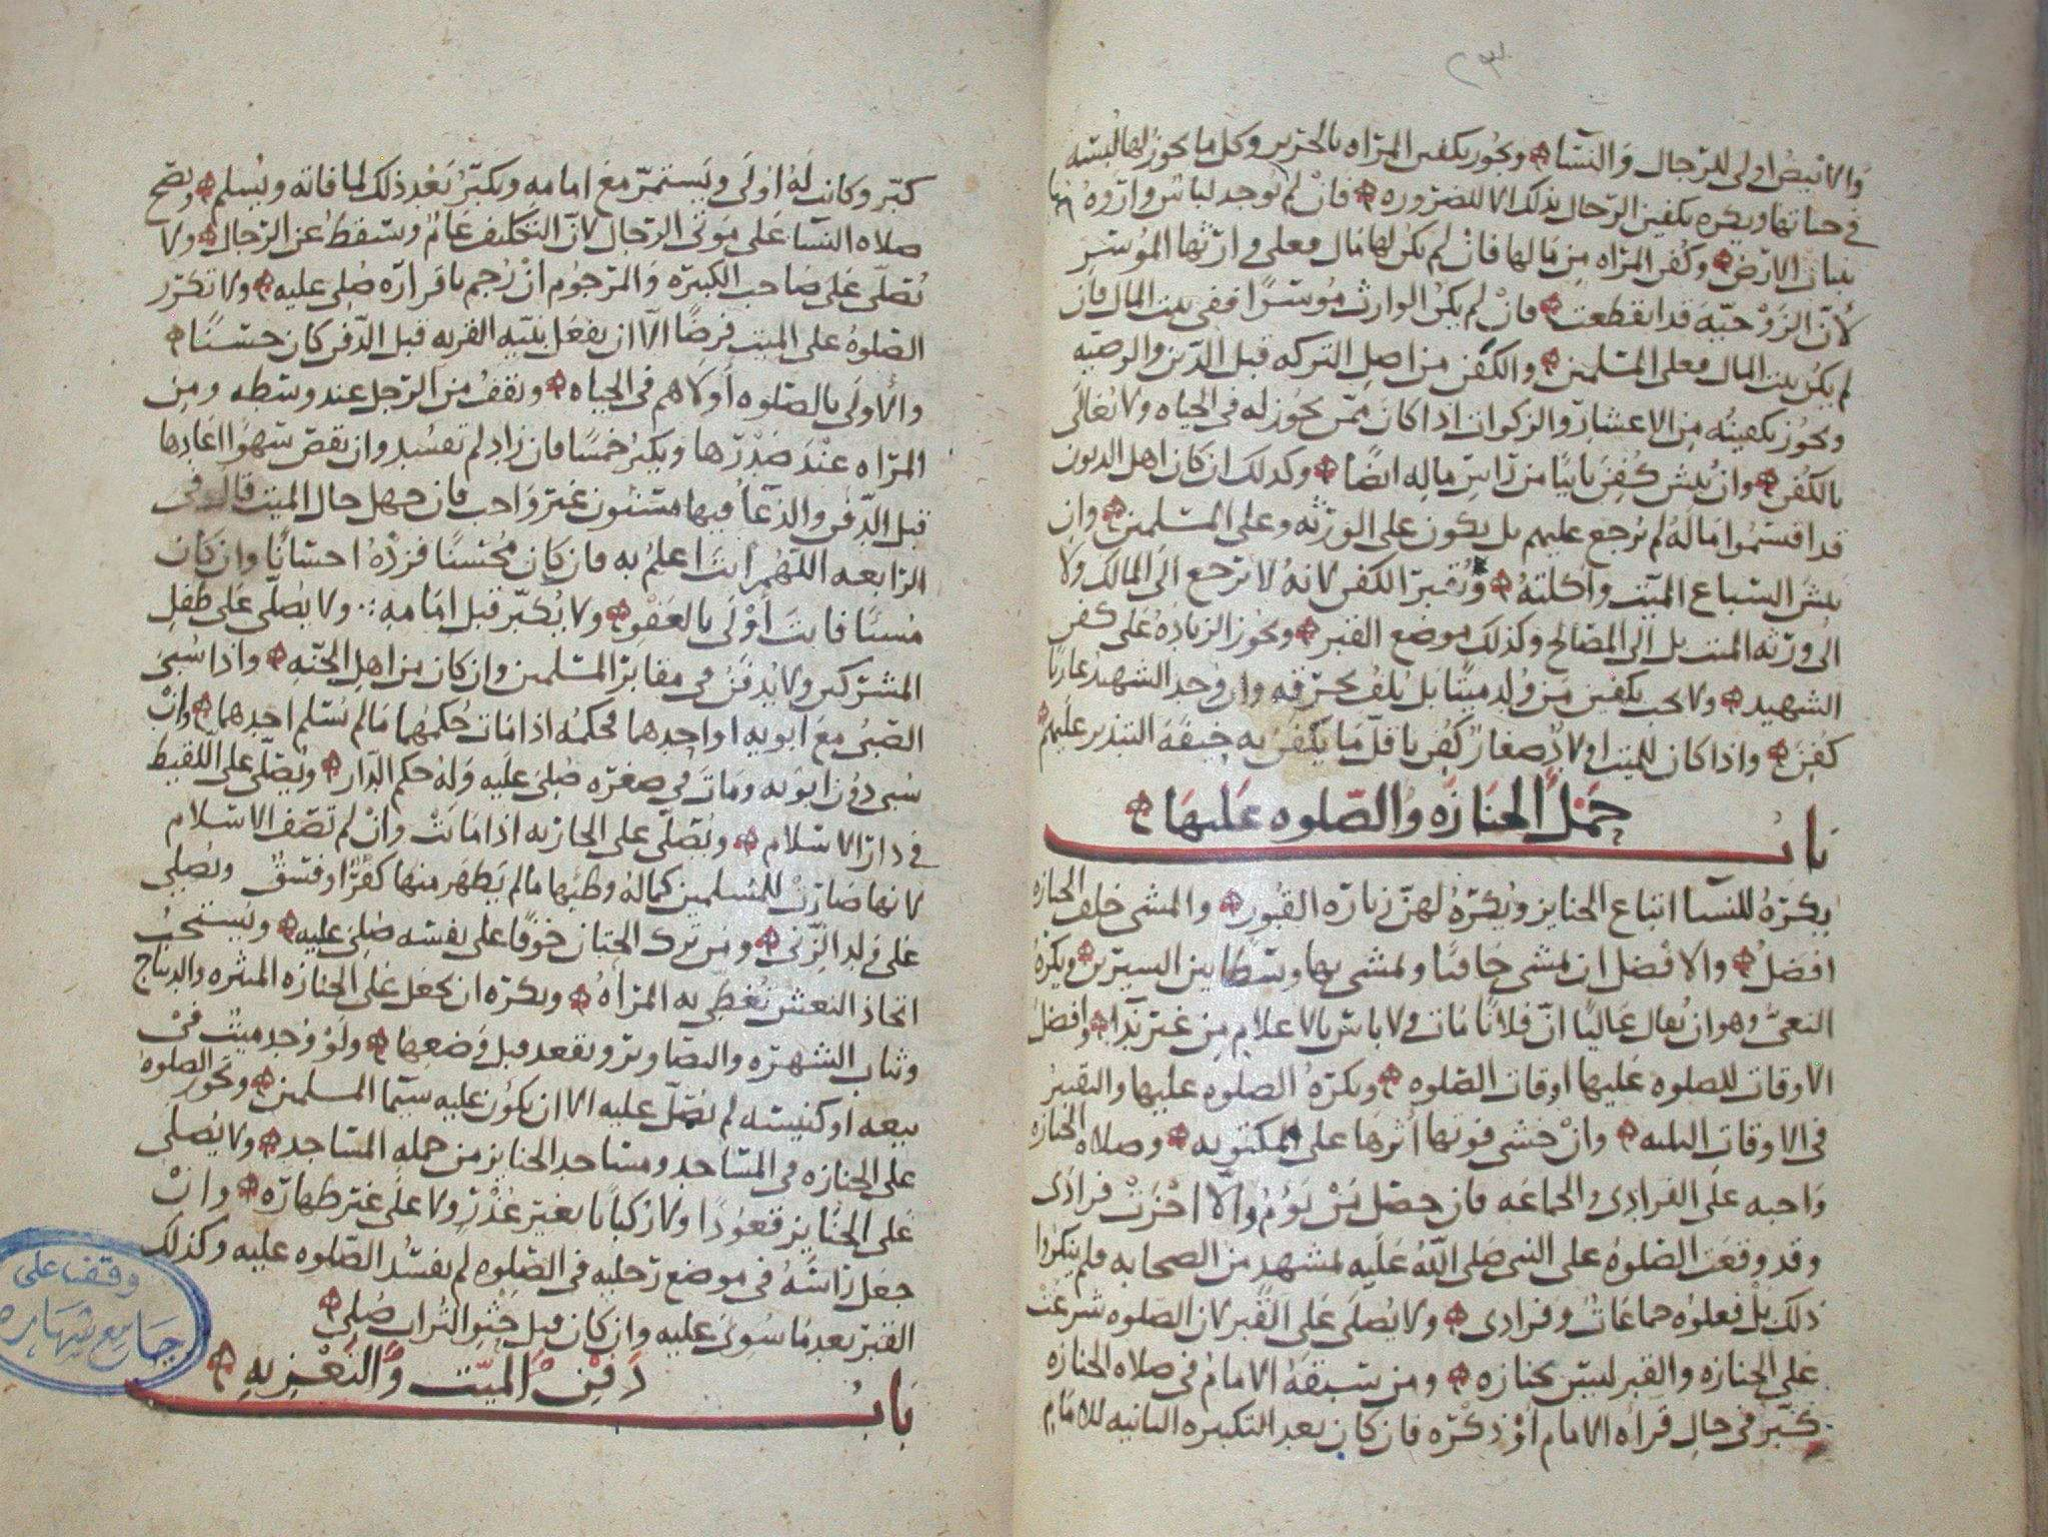 ٢٣
والابيض اولى للرجال والنسا ويجوز تكفين المراه بالحرير وكل ما يجوز لها لبسه
في حياتها ويكره تكفين الرجال بذلك الا للضروره فان لم يوجد لباس واروه
بنبات الارض وكفن المراه من مالها فان لم يكن لها مال فعلى وارثها الموسر
لان الزوجيه قد انقطعت فان لم يكن الوارث موسرا ففي بيت المال فان
لم يكن بيت المال فعلى المسلمين والكفن من اصل التركه قبل الدين والوصيه
ويجوز تكفينه من الاعشار والزكوات اذا كان ممن يجوز له في الحياه ولا يغالى
بالكفن وان نبش كفن ثانيا من راس ماله ايضا وكذلك ان كان اهل الديون
قد اقتسموا ماله لم يرجع عليهم بل يكون على الورثه وعلى المسلمين وان
نبش السباع الميت واكلته الكفن لانه لا يرجع الى المالك ولا
الى ورثه الميت بل الى المصالح وكذلك موضع القبر ويجوز الزياده على كفن
الشهيد ولا يجب تكفين من ولد ميتا بل يلف بخرقه وان وجد الشهيد عاريا
كفن واذا كان للميت اولاد صغار كفن باقل ما يكفن به خيفة التبذير عليهم
باب حمل الجنازه والصلوه عليها
يكره للنسا اتباع الجنايز ويكره لهن زياره القبور والمشي خلف الجنازه
افضل والافضل ان يمشي حافيا ولمشى بها وسطا بين السيرين ويكره
النعي وهو ان يقال عاليا ان فلانا مات ولا باس بالاعلام من غير ندا وافضل
الاوقات للصلوه عليها اوقات الصلوه وتكره الصلوه عليها والتقبير
في الاوقات الثلثه وان خشي فوتها اثرها على المكتوبه وصلاه الجنازه
واجبه على الفرادى والجماعه فان حصل من يؤم والا اجزت فرادى
وقد وقعت الصلوه على النبي صلى الله عليه لمشهد من الصحابه فلم ينكروا
ذلك بل فعلوه جماعات وفرادى ولا يصلى على القبر لان الصلوه شرعت
على الجنازه والقبر ليس بجنازه ومن سبقه الامام في صلاه الجنازه
كبر في حال قراه الامام او ذكره فان كان بعد التكبيره الثانيه للامام
كبر وكانت له اولى ويستمر مع امامه ويكبر بعد ذلك لما فاته ويسلم وتصح
صلاه النسا على موتى الرجال لان التكليف عام وتسقط عن الرجال ولا
تصلى على صاحب الكبيره والمرجوم ان رجم باقراره صلي عليه ولا تكرر
الصلوه على الميت فرضا الا ان يفعل بنيه القربه قبل الدفن كان حسنا
والاولى بالصلوه اولاهم في الحياه ويقف من الرجل عند وسطه ومن
المراه عند صدرها ويكبر خمسا فان زاد لم تفسد وان نقص سهوا اعادها
قبل الدفن والدعا فيها مسنون غير واجب فان جهل حال الميت قال في
الرابعه اللهم انت اعلم به فان كان محسنا فزده احسانا وان كان
مسئا فانت اولى بالعفو ولا يكبر قبل امامه ولا يصلى على طفل
المشركين ولا يدفن في مقابر المسلمين وان كان من اهل الجنه واذا سبي
الصبي مع ابويه او احدهما فحكمه اذا مات حكمهما ما لم يسلم احدهما وان
سبي دون ابويه ومات في صغره صلي عليه وله حكم الدار ويصلى على اللقيط
في دار الاسلام ويصلى على الجاريه اذا ماتت وان لم تصف الاسلام
لانها صارت للمسلمين كما له وطئها ما لم يظهر منها كفر او فسق ويصلى
على ولد الزنى ومن ترك الختان خوفا على نفسه صلي عليه ويستحب
اتخاذ النعش تغطى به المراه ويكره ان يجعل على الجنازه المثره والديباج
وثياب الشهره والتصاوير ويقعد قبل وضعها ولو وجد ميت في
بيعه او كنيسه لم يصل عليه الا ان يكون عليه سيما المسلمين وتجوز الصلوه
على الجنازه في المساجد ومساجد الجنايز من جمله المساجد ولا يصلى
على الجنايز قعودا ولا ركبانا بغير عذر ولا على غير طهاره وان
جعل راسه في موضع رجليه في الصلوه لم يفسد الصلوه عليه وكذلك
القبر بعد ما سوي عليه وان كان قبل حثو التراب صلي
باب دفن الميت والتعزيه
وقف على
جامع شهاره